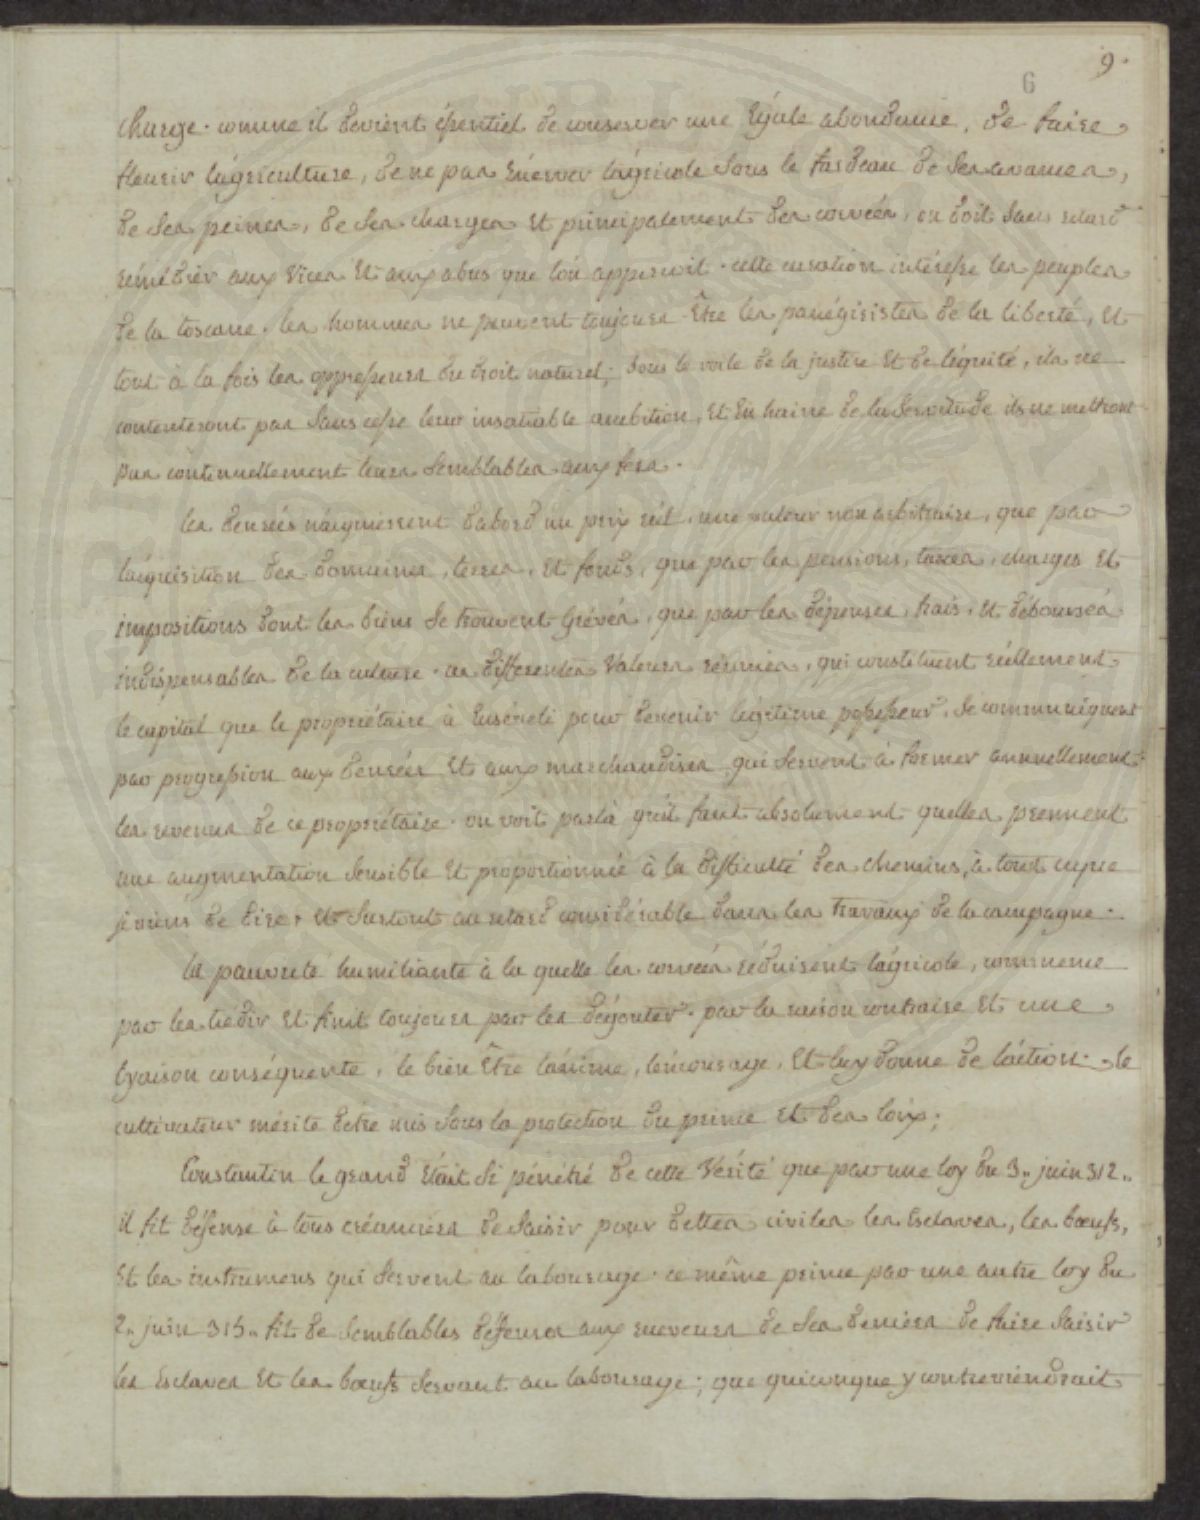 9.
6
charge. comme il devient éssentiel de conserver une Egale abondance, de faire
fleurir l'agriculture, de ne pas Enerver l'agricole sous le fardeau de ses avances,
de ses peines, de ses charges Et principalement des corvées, on doit sans retard
remédier aux Vices Et aux abus que l'on apperçoit. cette cessation intéresse les peuples
de la toscane. les hommes ne peuvent toujours Être les panégiristes de la liberté, Et
tout à la fois les oppresseurs du droit naturel; sous le voile de la justice Et de l'équité, ils ne
contenteront pas sans cesse leur insatiable ambition, Et En haine de la servitude ils ne mettront
pas continuellement leurs semblables aux fers.
les denrées n'acquierrent d'abord un prix réel, une valeur non arbitraire, que par
l'acquisition des domaines, terres, Et fonds, que par les pensions, taxes, charges Et
impositions dont les biens se trouvent Grévés, que par les dépenses, frais, Et déboursés
indispensables de la culture. ces differentes Valeurs réunies, qui constituent réellement
le capital que le propriétaire à Enséveli pour devenir légitime possesseur, se communiquent
par progression aux denrées Et aux marchandises qui servent à former annuellement
les revenus de ce propriétaire. on voit par là qu'il faut absolument quelles prennent
une augmentation sensible Et proportionnée à la difficulté des chemins, à tout ce que
je viens de dire, Et surtout au retard considérable dans les travaux de la campagne.
la pauvreté humiliante à la quelle les corvées réduisent l'agricole, commence
par les tiédir Et finit toujours par les dégouter. par la raison contraire Et une
lyaison conséquente, le bien Être l'anime, l'encourage, Et luy donne de l'action. le
cultivateur mérite d'etre mis sous la protection du prince Et des loix;
Constantin le grand Etait si pénétré de cette Vérité que par une loy du 3,, juin 312,,
il fit deffense à tous créanciers de saisir pour dettes civiles les Esclaves, les bœufs,
Et les instrumens qui servent au labourage. ce même prince par une autre loy du
2,, juin 315,, fit de semblables deffenses aux receveurs de ses deniers de faire saisir
les Esclaves Et les bœufs servant au labourage; que quiconque y contreviendrait